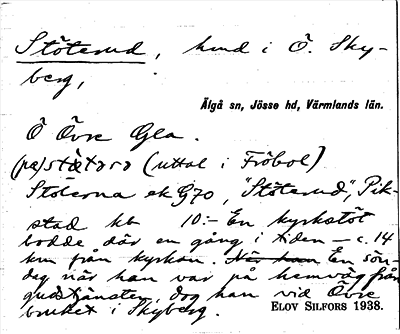 Stöterud, hmd i Ö. Sky-
berg,
Älgå sn, Jösse hd, Värmlands län.
Ö Övre Gla.
(på) (uttal i Fröbol)
Stöterna ek G70, "Stöterud", Pik-
stad kb 10:- En kyrkstöt
bodde där en gång i tiden – c. 14
km från kyrkan. När han En sön-
dag när han var på hemväg från
gudstjänsten, dog han vid Övre
bruket i Skyberg.
ELOV SILFORS 1938.